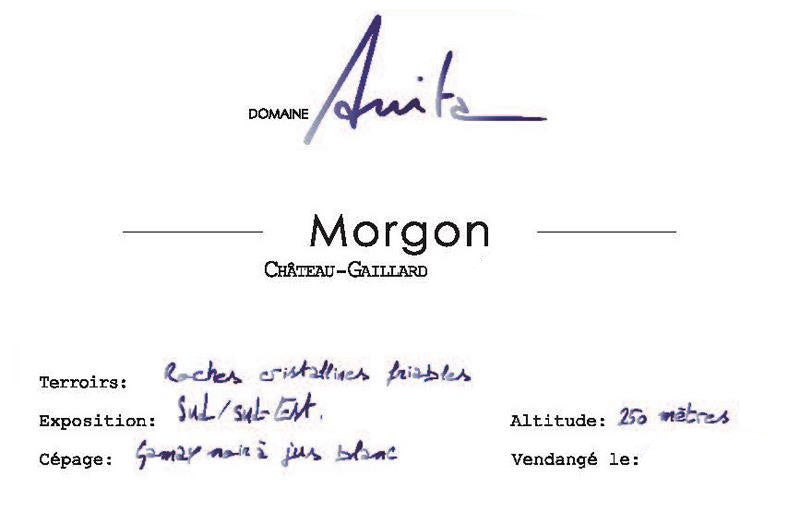 DOMAINE Anita
Morgon
CHÂTEAU-GAILLARD
Terroirs: Roches cristallines friables
Exposition: Sud/sud-Est. Altitude: 250 mètres
Cépage: Gamay noir à jus blanc Vendangé le: